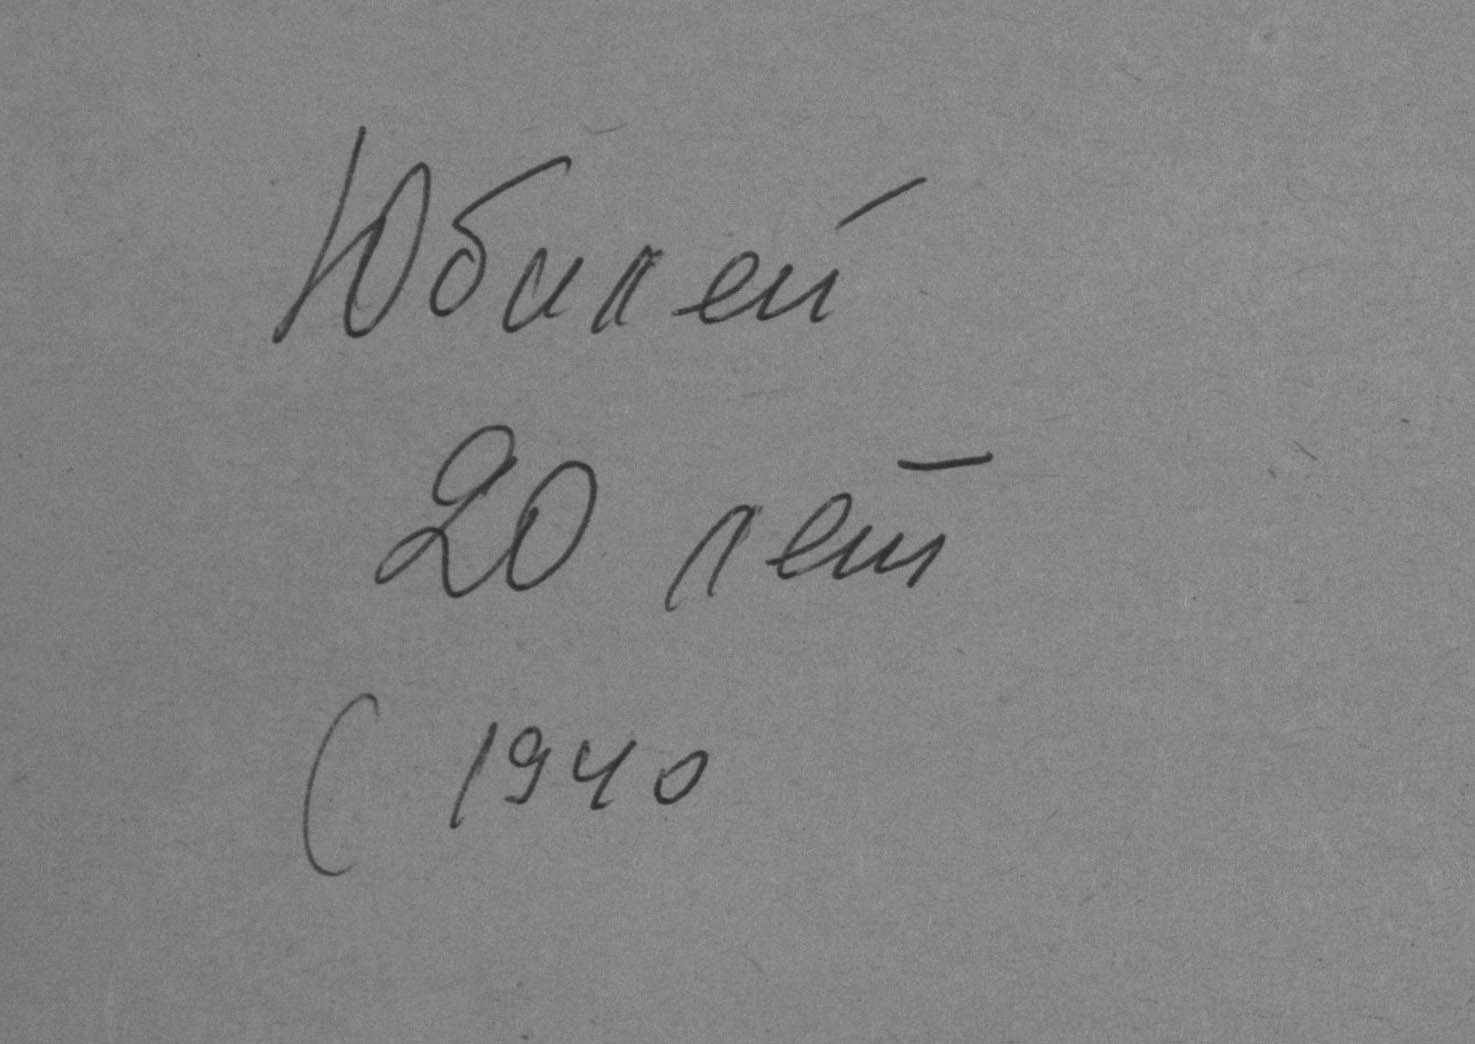 Юбилей
20 лет
( 1940